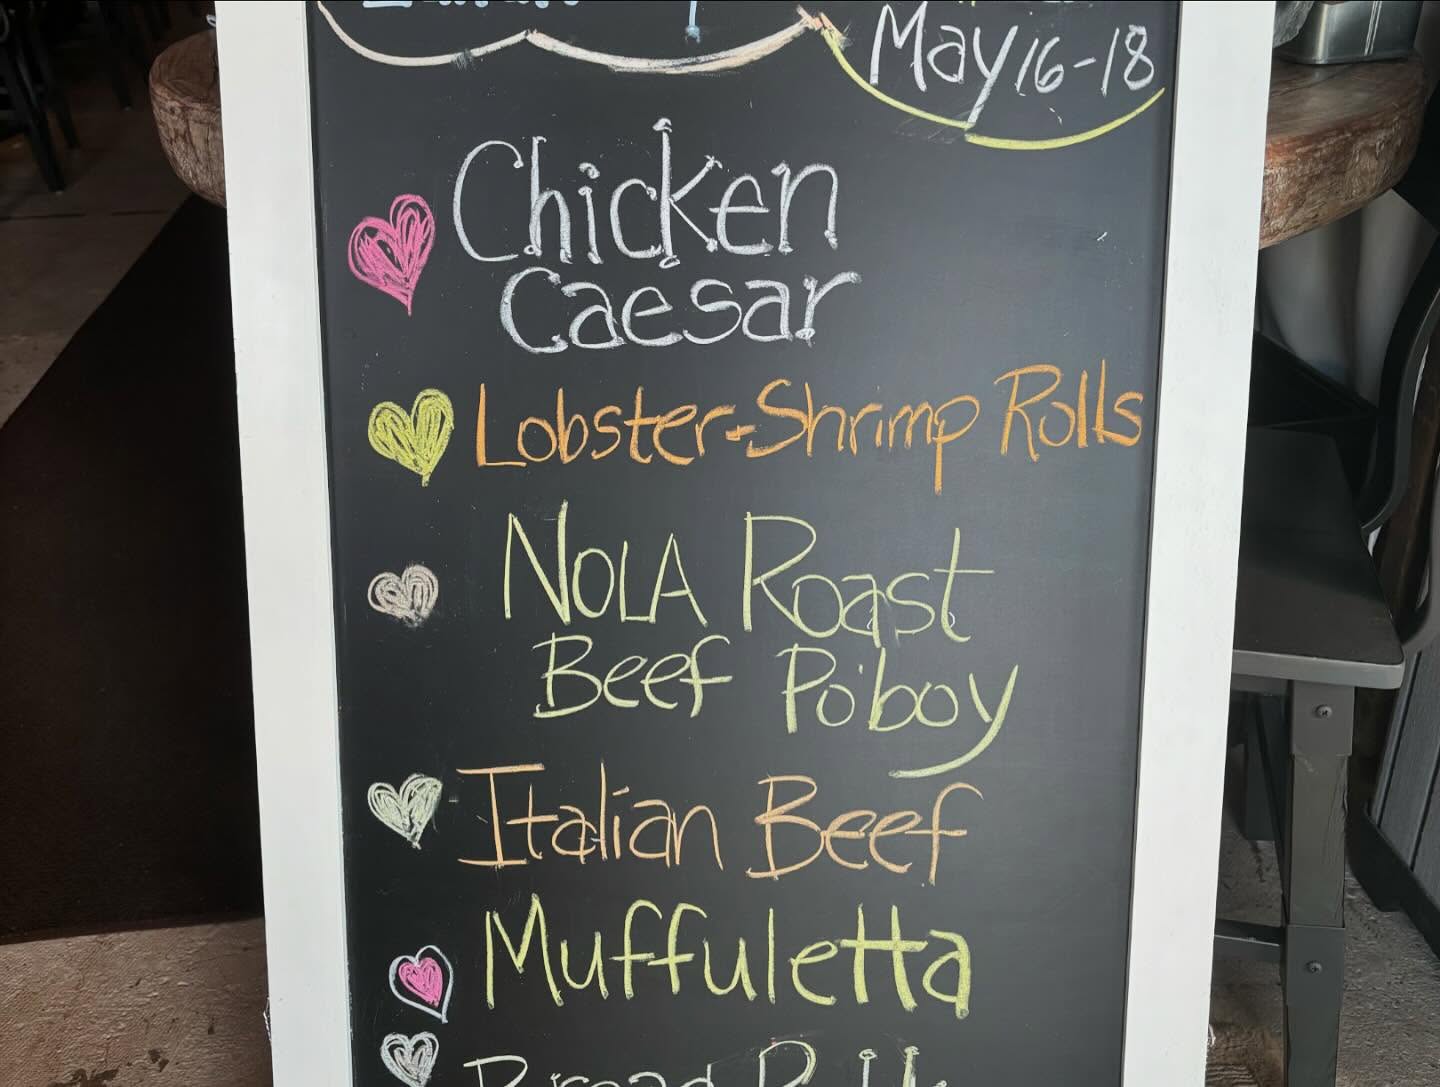 May 16-18
Chicken
Caesar
Lobster-Shrimp Rolls
NOLA Roast
Beef Po'boy
Italian Beef
Muffuletta